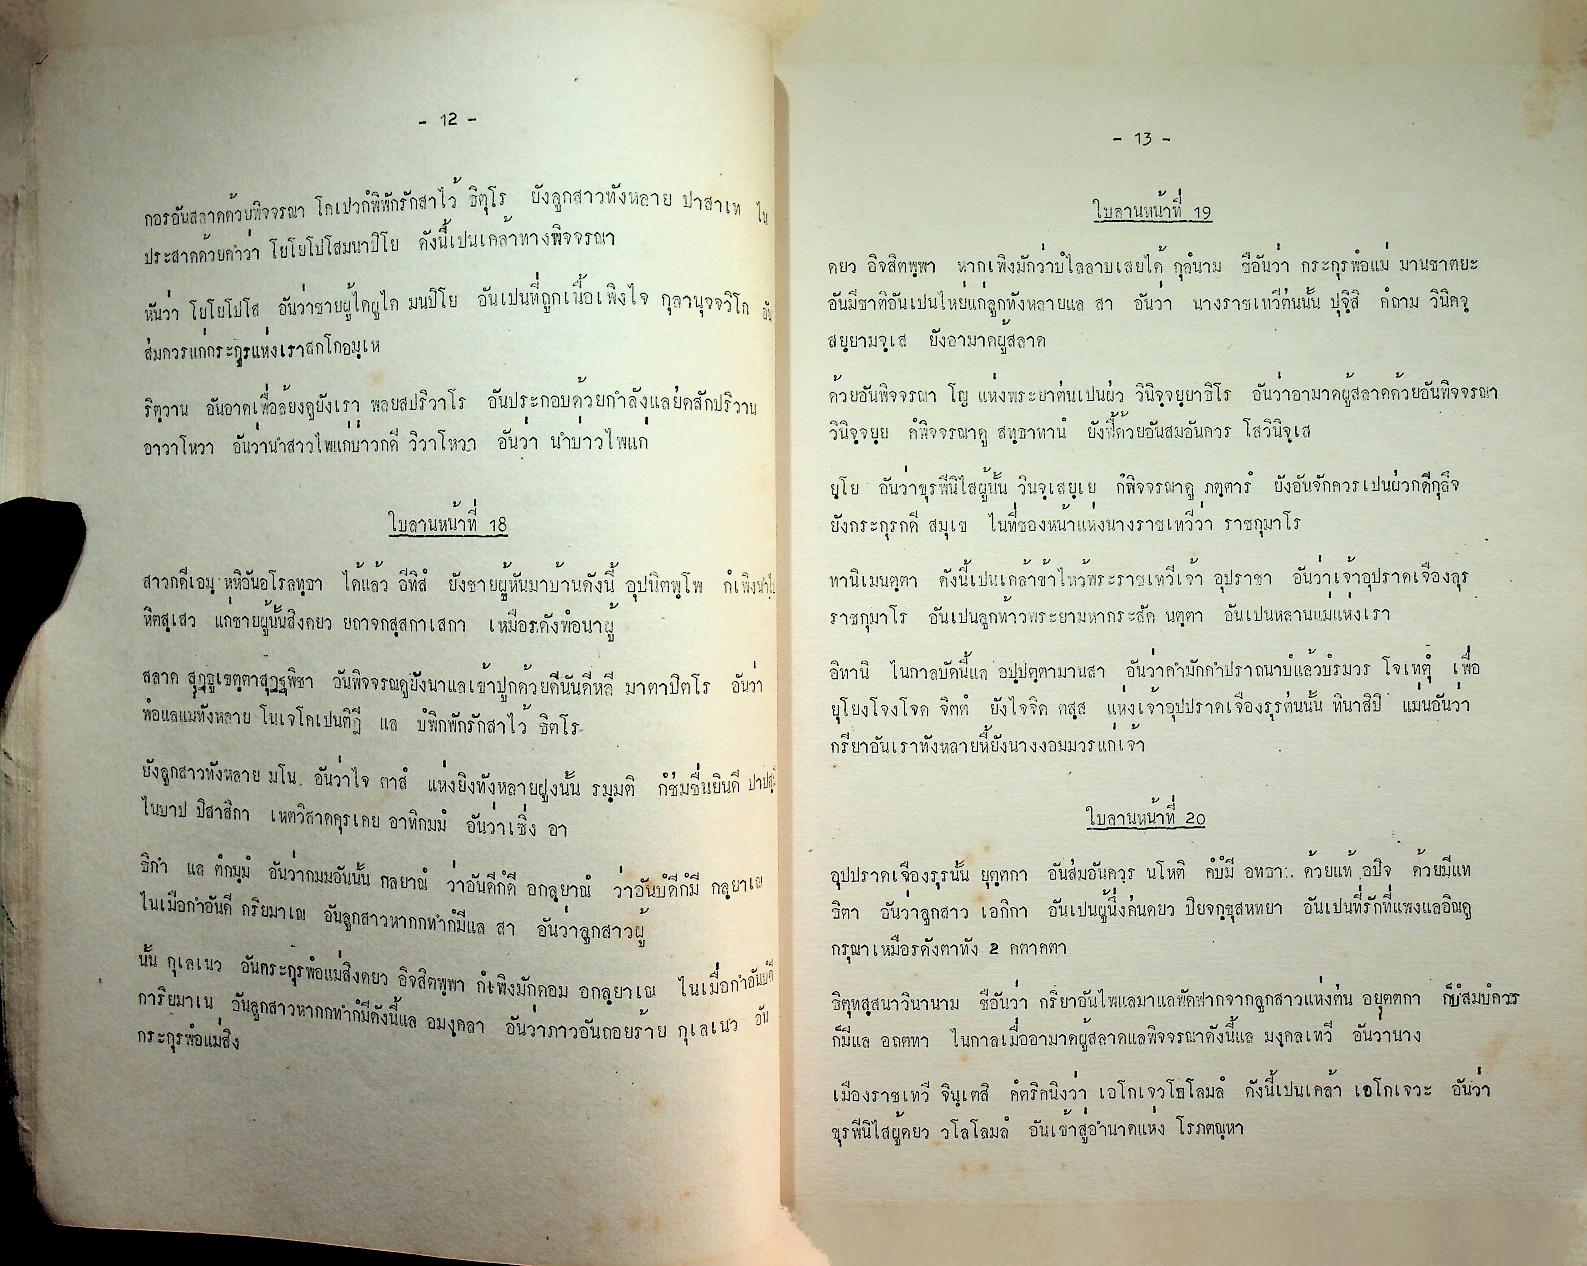 - 12 -
กอรอันสลาดด้วยพิจจรณา โกเปวก็พิพักรักสาไว้ ธิตุโร ยังลูกสาวทังหลาย ปาสาเท ใน
ประสาทด้วยคำว่า โยโยโปโสมนาปิโย ดังนี้เปนเคล้าทางพิจจรณา
หันว่า โยโยโปโส อันว่าชายผู้ใดผูใด มนปิโย อันเปนที่ถูกเนื้อเพิงใจ กุลานุจจวิโก อัน
ส่มควรแก่กระกูรแห่งเราสกโกอมฺเห
ริตฺวาน อันอาดเพื่อล้ยงดูยังเรา พลยสปริวาโร อันประกอบด้วยกำลังแลย่ดสักปริวาน
อาวาโหวา อันว่านำสาวไพแก่บ่าวกดี วิวาโหวา อันว่า นำบ่าวไพแก่
ใบลานหน้าที่ 18
สาวกดีเอมฺ หหิอันอโรลทฺธา ได้แล้ว อีทิสํ ยังชายผู้หันมาบ้านดังนี้ อุปนิตพฺโพ ก็เพิงนำไป
หิตสฺเสว แก่ชายผู้นั้นสิงดยว ยถาจกสฺสกาเสกา เหมือรดังพ่อนาผู้
สลาด สุฏฺฐูเขตฺตาสุฏฺฐุพิชา อันพิจจรณดูยังนาแลเข้าปูกด้วยดีนันดีหลี มาตาปิตโร อันว่า
พ่อแลแม่ทังหลาย โนเจโกเปนติฎี แล บ่พิกพักรักสาไว้ ธิตโร
ยังลูกสาวทังหลาย มโน อันว่าใจ ตาสํ แห่งยิงทังหลายฝูงนั้น รมฺมติ ก็ช่มชื่นยินดี ปาปสฺ
ในบาป ปิสาสิกา เหตวิสาดคุรเดย อาทิกมมํ อันว่าเชิ่ง อา
ธิกำ แล ต่กมฺมํ อันว่ากมมอันนั้น กลยาณํ ว่าอันดีก็ดี อกลฺยาณํ ว่าอันบ่ดีก็มี กลฺยาเณ
ในเมือกำอันดี กริยมาเณ อันลูกสาวหากกทำก็มีแล สา อันว่าลูกสาวผู้
นั้น กุเลเนว อันกระกุรพ่อแม่สิงดยว อิจสิตพฺพา ก็เพิงมักดอม อกลฺยาเณ ในเมื่อกำอันบ่ดี
การิยมาเน อันลูกสาวหากกทำก็มีดังนี้แล อมงฺคลา อันว่าภาวอันถอยร้าย กุเลเนว อัน
กระกุรพ่อแม่สิง
- 13 -
ใบลานหน้าที่ 19
ดยว อิจสิตพฺพา หากเพิงมักว่าบ่ไลลาบเสยได้ กุลํนาม ชือันว่า กระกุรพ่อแม่ มานชาตยะ
อันมีชาติอันเปนไหย่แก่ลูกทังหลายแล สา อันว่า นางราชเทวีต่นนั้น ปุจฺิสิ ก็ถาม วินิคจฺ
สยฺยามจฺเส ยังอามาดผู้สลาด
ด้วยอันพิจจรณา โญ แห่งพระยาต่นเปนผ่ว วินิจฺจยฺยาธิโร อันว่าอามาดผู้สลาดด้วยอันพิจจรณา
วินิจฺจยฺย ก็พิจจรณาดู สทฺธาทานํ ยังฟี้ด้วยอันสมอันควร โสวินิจฺเส
ยฺโย อันว่าขุรพีนิไสผู้นั้น วินจฺเสยฺเย ก็พิจจรณาดู ภตฺตารํ ยังอันจักควรเปนผ่วกดีกุลึจ
ยังกระกุรกดี สมุเข ในที่ซองหน้าแห่งนางราชเทวีว่า ราชกุมาโร
ทานิเมนตฺตา ดังนี้เปนเกล้าข้าไหว้พระราชเทวีเจ้า อุปราชา อันว่าเจ้าอุปราดเจืองลุร
ราชกุมาโร อันเปนลูกท้าวพระยามหากระสัด นตฺตา อันเปนหลานแม่แห่งเรา
อิทานิ ในกาลบัดนี้แล อปฺปตฺตามานสา อันว่ากำมักกำปราถนาบ่แล้วบ่รมวร โจเหตุํ เพื่อ
ยุโยงโจงโจด จิตตํ ยังใจจิด ตสฺส แห่งเจ้าอุปปราดเจืองรุรต่นนั้น ทินาสิปิ แม่นอันว่า
กรียาอันเราทังหลายหื้ยังนางงอมมวรแก่เจ้า
ใบลานหน้าที่ 20
อุปปราดเจืองรุรนั้น ยุตฺตกา อันส่มอันควฺร นโหติ ก็บ่มี อทธา ด้วยแท้ อปิจ ด้วยมีแท
ธิตา อันว่าลูกสาว เอกิกา อันเปนผู้นึ่งค่นดยว ปิยจกฺขุสหทยา อันเปนที่รักที่แพงแลอิณดู
กรุณาเหมือรดังตาทัง 2 กตาดตา
ธิตุทสฺสนาวินานาม ชือันว่า กริยาอันไพแลมาแลพัดฟากจากลูกสาวแห่งต่น อยุตตกา ก็บ่สมบ่ควร
ก็มีแล อถตทา ในกาลเมื่ออามาดผู้สลาดแลพิจจรณาดังนี้แล มงฺคลเทวี อันวานาง
เมืองราชเทวี จินฺเตสิ ก็ตริดนิงว่า เอโกเจวโธโลมลํ ดังนี้เปนเคล้า เอโกเจวะ อันว่า
ขุรพีนิไสผู้ดยว วโลโลมลํ อันเข้าสู่อำนาดแห่ง โรภตณฺหา